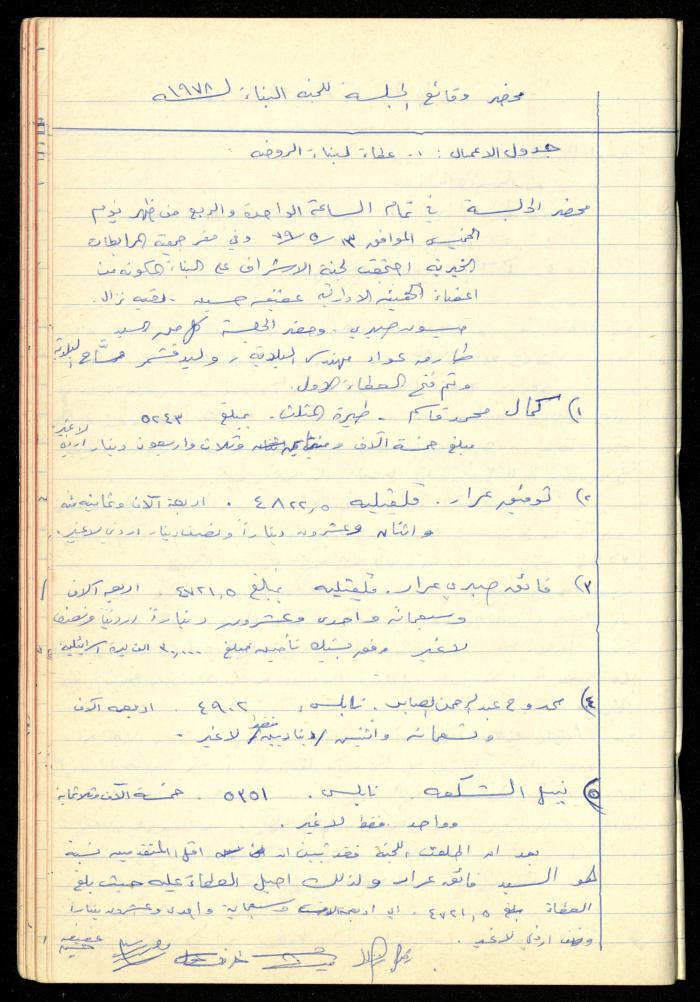 محضر وقائع الجلسة للجنة البناء لسنة ١٩٧٨
جدول الاعمال : ١- عطاء لبناء الروضه
محضر الجلسة في تمام الساعة الواحدة والربع من ظهر يوم
الخميس الموافق ٣ / ٥ / ٧٩ وفي مقر جمعية المرابطات
الخيرية اجتمعت لجنة الاشراف على البناء المكونه من
اعضاء الهيئه الادارية عفيفه حسين . رقيه نزال .
ميسون صبري . وحضر الجلسة كل من السيد
طارق عواد مهندس البلدية ، وليد قشمر مسّاح البلدية
وتم فتح العطاء الاول .
١) كمال محمد قاسم - طيرة المثلث . بمبلغ ٥٢٤٣
مبلغ خمسة آلاف ومئتان وثلاث واربعون دينار اردني لا غير
٢) توفيق عرار . قلقيليه ٤٨٢٢,٥ . اربعة آلاف وثمانيه مئه
واثنان وعشرون ديناراً ونصف دينار اردني لا غير .
٣) فائق صبري عرار . قلقيليه بمبلغ ٤٧٢١,٥ . اربعه آلاف
وسبعمائه وواحدى وعشرون ديناراً اردنياً ونصف
لا غير وفق بشيك تأمين مبلغ ٣٠,٠٠٠ الف ليرة اسرائيلية
٤) ممدوح عبد الرحمن الصابر . نابلس . ٤٩٠٢ . اربعه آلاف
وتسعمائه واثنين / دينارين فقط / لا غير .
٥) نبيل الشكعه . نابلس . ٥٣٥١ . خمسة آلاف وثلاثماية
وواحد فقط لا غير .
بعد ان اطلعت اللجنة فقد تبين ان اقل المتقدمين نسبة
هو السيد فائق عرار ولذلك احيل العطاء عليه حيث بلغ
العطاء بلغ ٤٧٢١,٥ . اي اربعة آلاف وسبعماية وواحدى وعشرون ديناراً
ونصف اردني لا غير .
عفيفه حسين